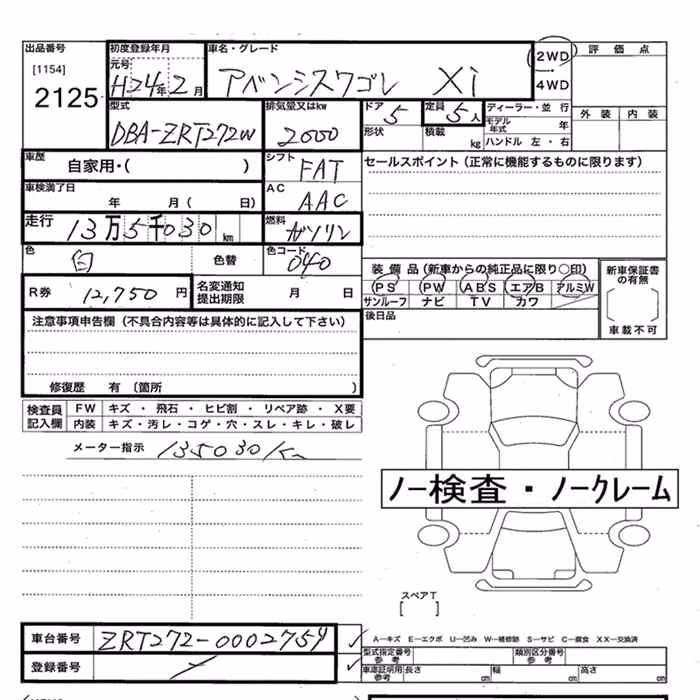 出品番号 初度登録年月 車名・グレード 2WD 評価点
[1154] 元号 H24年2月 アベンシスワゴン Xi 4WD
2125 型式 排気量又はkw ドア 5 定員 5人 ディーラー・並 行 外装 内装
DBA-ZRT272W 2000 形状 積載 kg モデル年式 年
ハンドル 左・右
車歴 自家用・( ) シフト FAT セールスポイント(正常に機能するものに限ります)
車検満了日 年 月( 日) AC AAC
走行 13万5千030km 燃料 ガソリン
色 白 色替 色コード 040 装備品(新車からの純正品に限り○印) 新車保証書の有無
PS PW ABS エアB アルミW
R券 12,750円 名変通知提出期限 月 日 サンルーフ ナビ TV カワ
注意事項申告欄(不具合内容等は具体的に記入して下さい) 後日品 車載不可
修復歴 有(箇所 )
検査員記入欄 FW キズ・飛石・ヒビ割・リペア跡・X要
内装 キズ・汚レ・コゲ・穴・スレ・キレ・破レ
メーター指示 135030km
ノー検査・ノークレーム
スペアT
[ ]
車台番号 ZRT272-0002759 A-キズ E-エクボ U-凹み W-補修跡 S-サビ C-腐食 XX-交換済
型式指定番号 参考 類別区分番号 参考
登録番号 車庫証明用参考 長さ cm 幅 cm 高さ cm